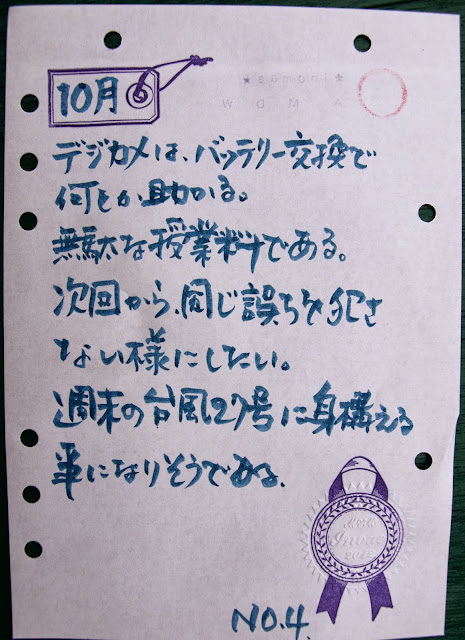 10月
デジカメは、バッテリー交換で
何とか助かる。
無駄な授業料である。
次回から、同じ誤ちを犯さ
ない様にしたい。
週末の台風27号に身構える
事になりそうである.
NO.4.